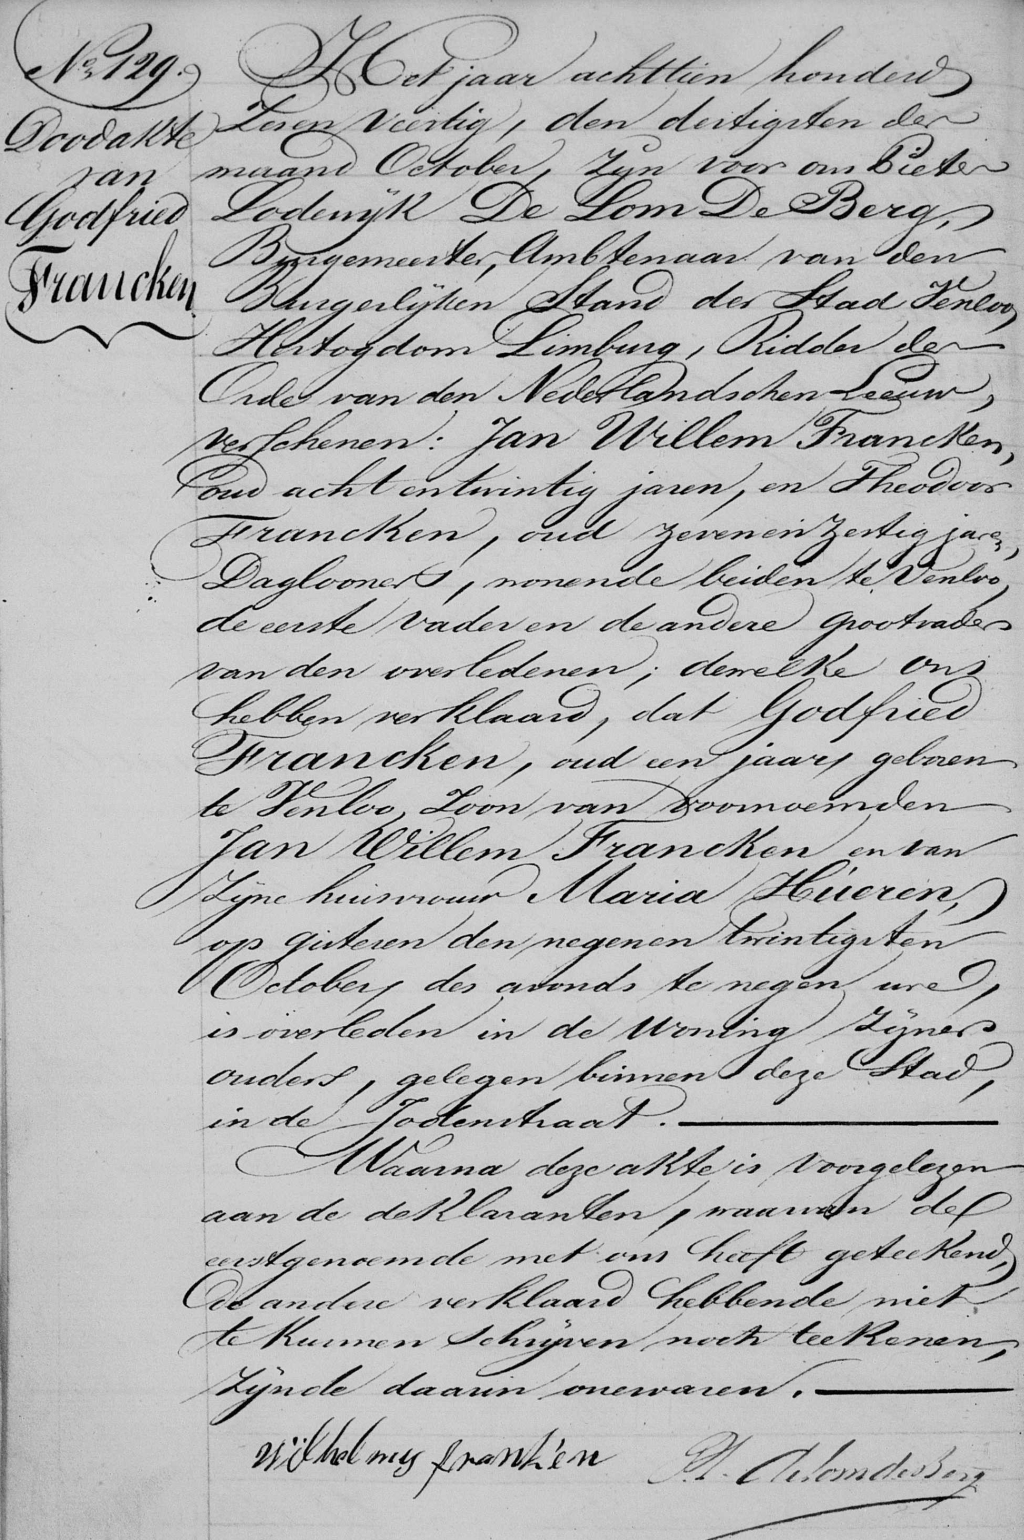 No. 129.
Doodakte
van
Godfried
Francken.
Het jaar achttien honderd
Zeven Veertig, den dertigsten der
maand October, Zijn voor ons Pieter
Lodewijk De Lom De Berg,
Burgemeester, Ambtenaar van den
Burgerlijken Stand der Stad Venloo,
Hertogdom Limburg, Ridder der
Orde van den Nederlandschen Leeuw,
verschenen: Jan Willem Francken,
oud acht entwintig jaren, en Theodoor
Francken, oud zevenenzestig jaren,
Daglooners, wonende beiden te Venloo,
de eerste vader en de andere grootvader
van den overledenen; dewelke ons
hebben verklaard, dat Godfried
Francken, oud een jaar, geboren
te Venloo, Zoon van voornoemden
Jan Willem Francken en van
Zijne huisvrouw Maria Hueren,
op gisteren den negenen twintigsten
October, des avonds te negen ure,
is overleden in de woning Zijner
ouders, gelegen binnen deze Stad,
in de Jodenstraat.
Waarna deze akte is voorgelezen
aan de deklaranten, waarvan de
eerstgenoemde met ons heeft geteekend,
de andere verklaard hebbende niet
te kunnen schrijven noch teekenen,
Zijnde daarin onervaren.
Wilhelmus franken
Pl. de Lom de Berg